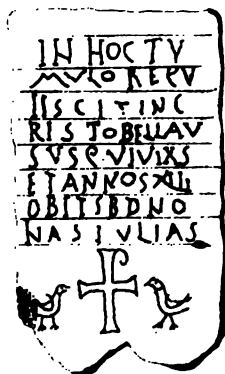 IN HOC TV
MVLO REPV
IISCIT IN C
RISTO BELLAV
SVS QVI VIXS
ET ANNOS XLII
OBIIT S B D NO
NAS IVLIAS